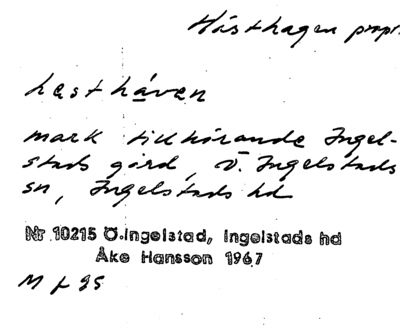 Hästhagen propr.
hest håven
mark tillhörande Ingel-
stads gård, Ö. Ingelstads
sn, Ingelstads hd
Nr 10215 Ö. Ingelstad, Ingelstads hd
Åke Hansson 1967
M f 95